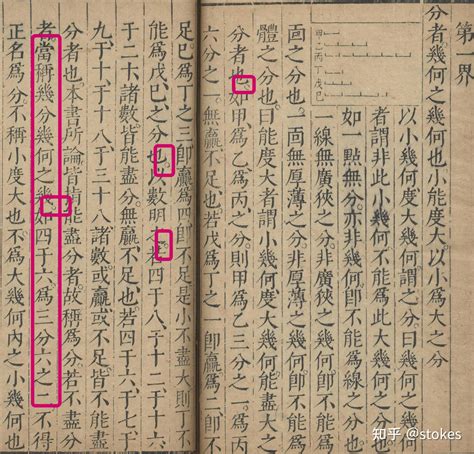 第一界
分者幾何之幾何也小能度大以小爲大之分
以小幾何度大幾何謂之分曰幾何之幾何
者謂非此小幾何不能爲此大幾何之分也
如一點無分亦非幾何卽不能爲線之分也
一線無廣狹之分非廣狹之幾何卽不能爲
面之分也一面無厚薄之分非厚薄之幾何卽不能爲
體之分也曰能度大者謂小幾何度大幾何能盡大之
分者也如甲爲乙爲丙之分則甲爲乙三分之一爲丙
六分之一無贏不足也若戊爲丁之一卽贏爲二卽不
甲乙丙丁戊巳
足巳爲丁之三卽贏爲四卽不足是小不盡大則丁不
能爲戊巳之分也以數明之若四于八于十二于十六
于二十諸數皆能盡分無贏不足也若四于六于七于
九于十于十八于三十八諸數或贏或不足皆不能盡
分者也本書所論皆指能盡分者故稱爲分若不盡分
者當稱幾分幾何之幾如四于六爲三分六之二不得
正名爲分不稱小度大也不爲大幾何內之小幾何也
知乎 @stokes